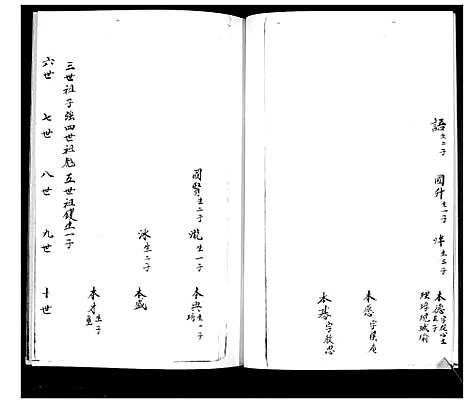 語生二子 國升生一子 烊生三子 本德字從心生五子
理 培 現 城 瑜
本慈字慎庵
本恭字敬思
國賢生二子 瀧生一子 本興生一子
培
冰生二子 本盛
本才生子
三世祖子強四世祖彪五世祖鑊生一子
六世 七世 八世 九世 十世